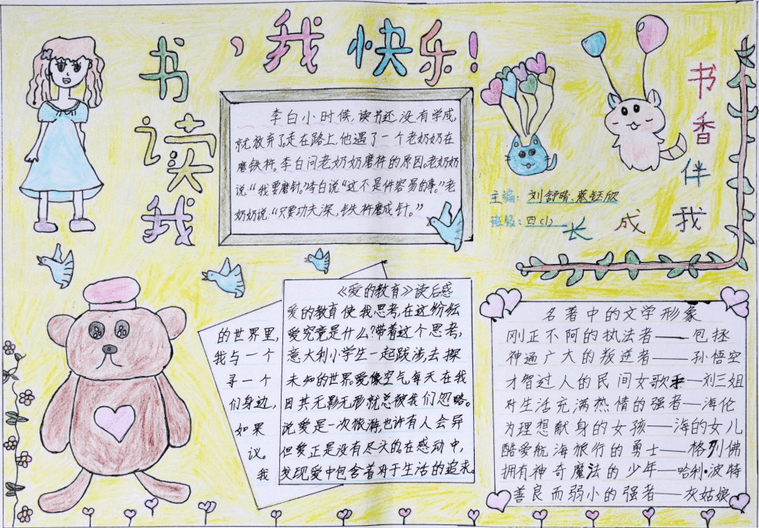 我读书,我快乐!
李白小时候,读书还没有学成,
就放弃了,走在路上,他遇了一个老奶奶在
磨铁杵。李白问老奶奶磨杵的原因,老奶奶
说“我要磨针。”李白说“这不是件容易的事。”老
奶奶说“只要功夫深,铁杵磨成针。”
书香伴我
成长
主编:刘舒晴.
班级:四(1)
《爱的教育》读后感
爱的教育使我思考,在这纷纭
的世界里,
爱究竟是什么?带着这个思考,
我与一个
意大利小学生一起跋涉去探
寻一个
未知的世界爱像空气每天在我
们身边,
因其无影无形就总被我们忽略。
如果
说爱是一次旅游,也许有人会异
议。
但爱正是没有尽头的,在感动中,
我
发现爱中包含着对于生活的追求
名著中的文学形象
刚正不阿的执法者——包拯
神通广大的叛逆者——孙悟空
才智过人的民间女歌手—刘三姐
对生活充满热情的强者—海伦
为理想献身的女孩—海的女儿
酷爱航海旅行的勇士—格列佛
拥有神奇魔法的少年—哈利·波特
善良而弱小的强者—灰姑娘